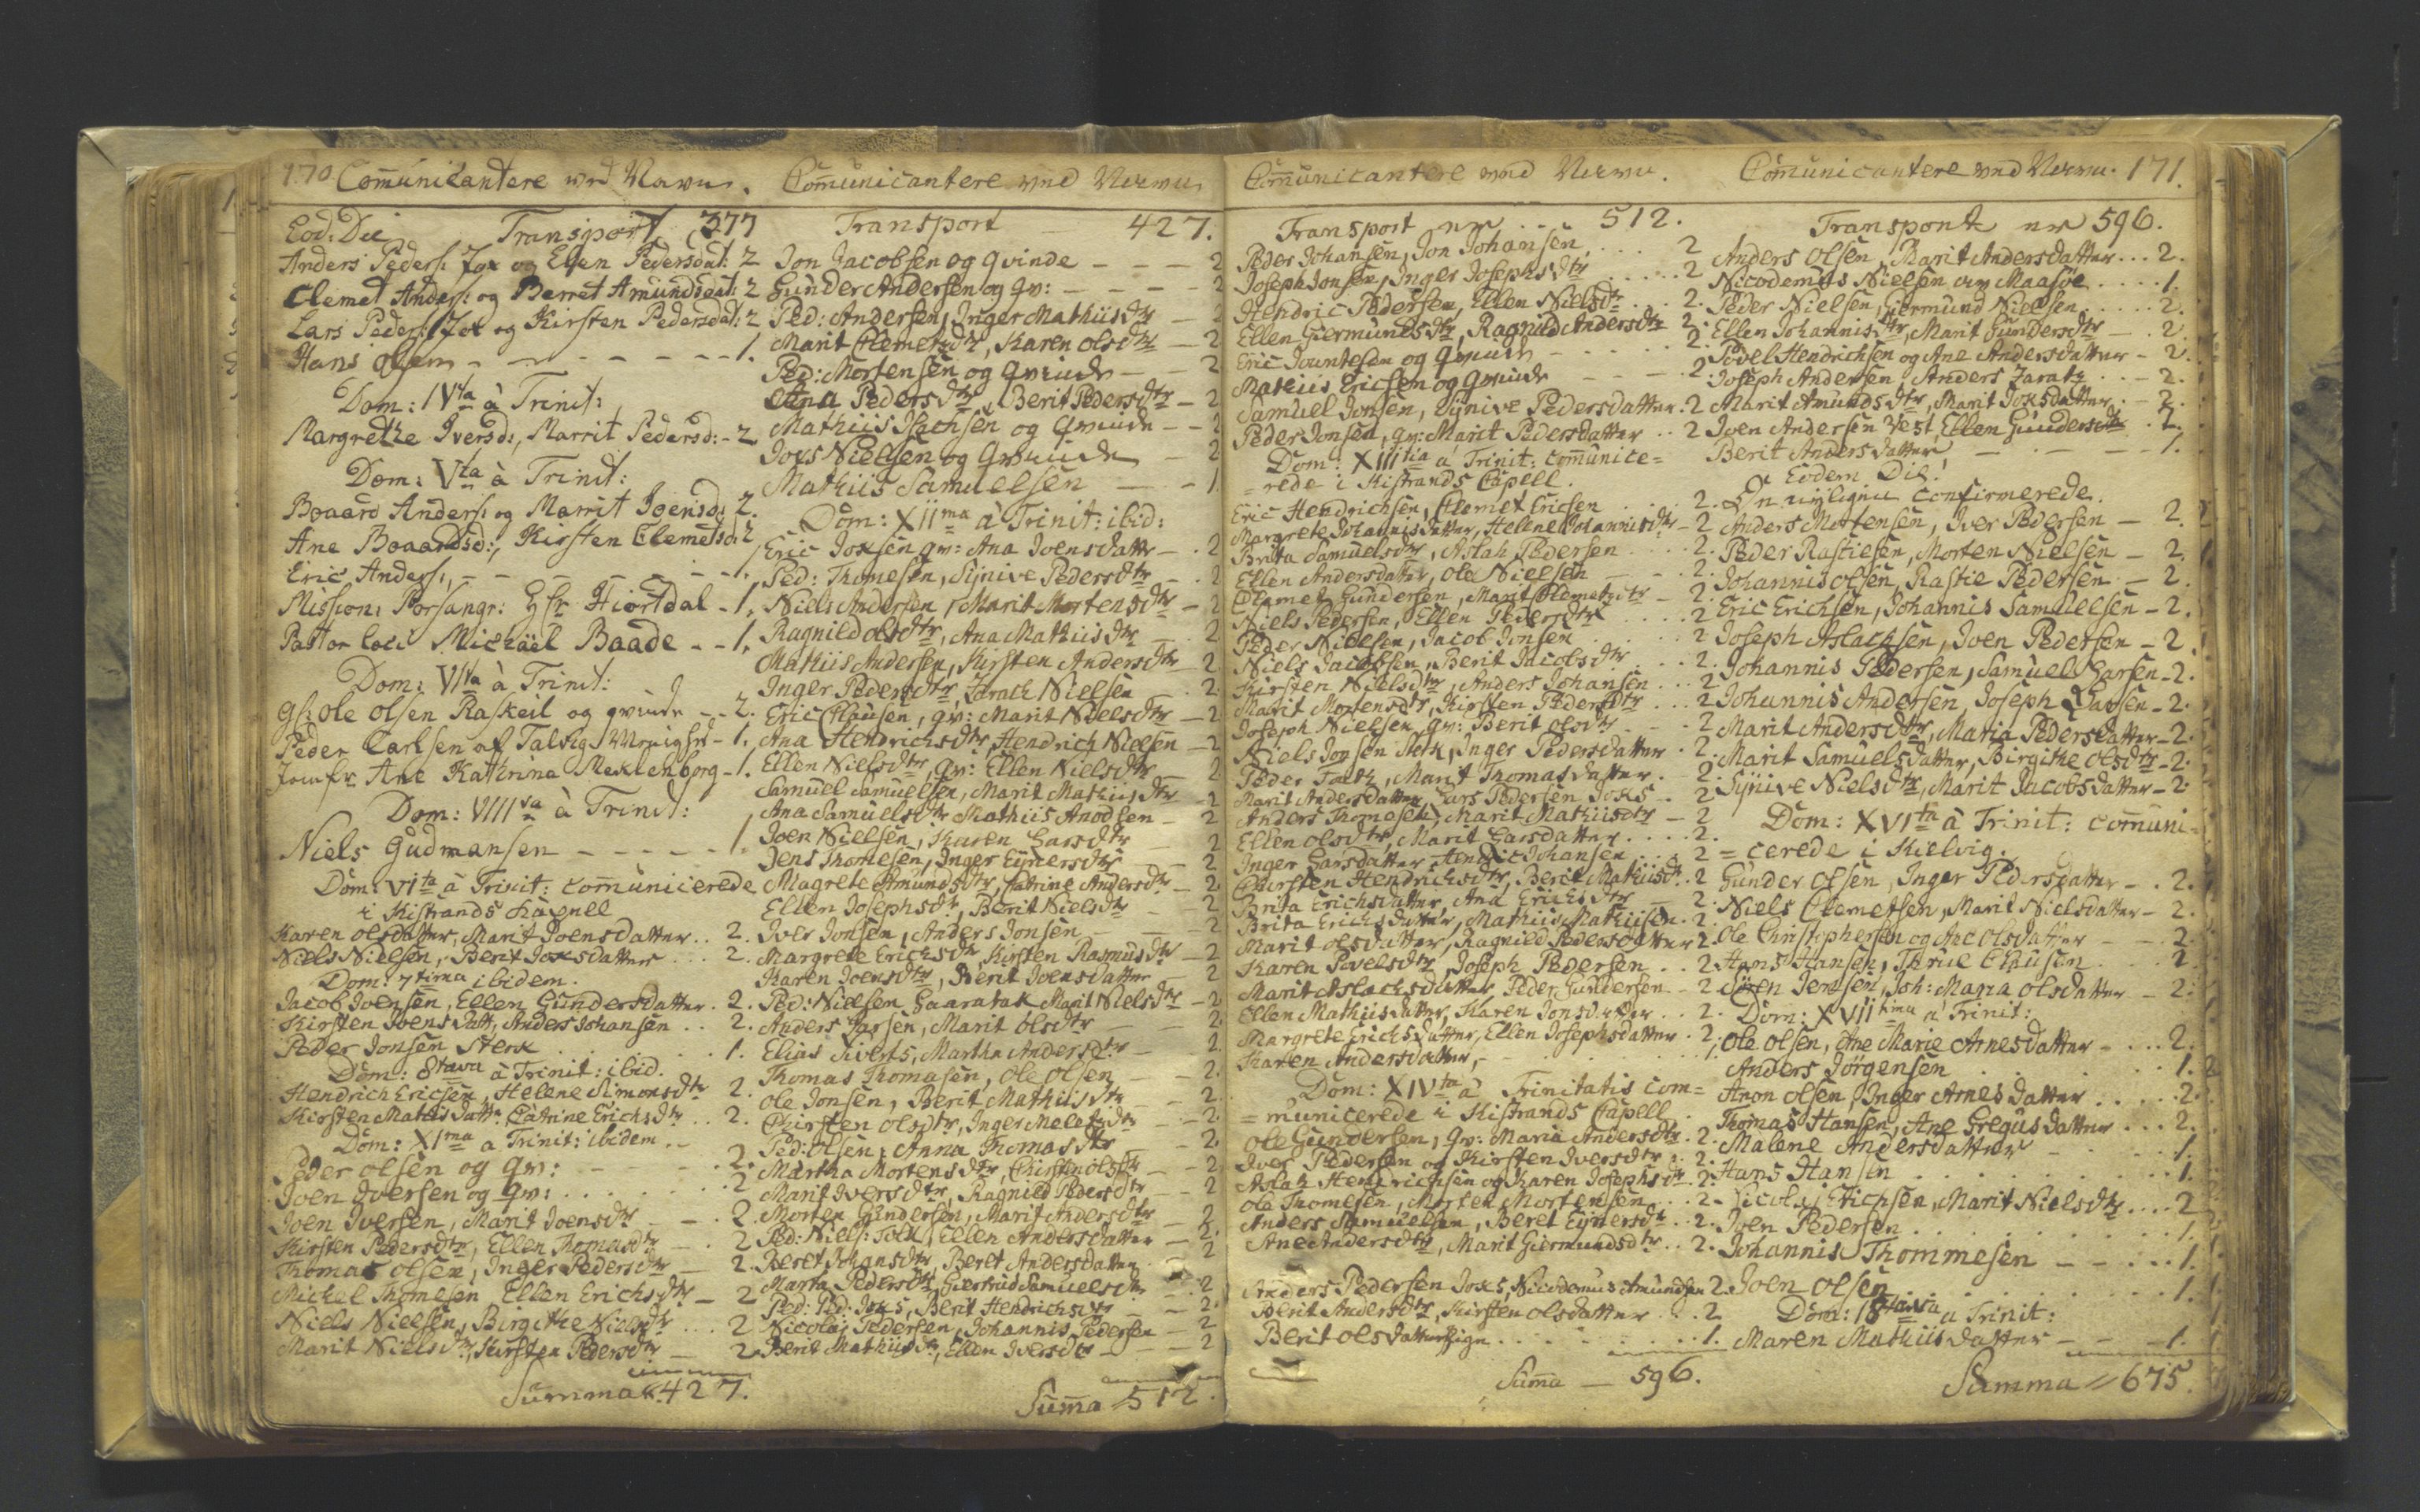 170 Communicantere ved Navn.
Eod: Die Transport 377
Anders Peders: Jox og Ellen Pedersdat: 2
Clemet Anders: og Berret Amundsdat: 2
Lars Peders: Jox og Kirsten Pedersdat: 2
Hans Olsen - - - - - - 1.
Dom: IVta à Trinit:
Margrethe Iversd:, Marrit Pedersd: - 2
Dom: Vta à Trinit:
Boaard Anders: og Marrit Joensd: 2.
Ane Boaardsd:, Kirsten Clemetsd: 2
Eric Anders: - - - - - 1.
Mission: Porsangr: Hr Hiortdal - 1.
Pastor loci Michaël Baade - - 1.
Dom: VIta à Trinit:
Ole Olsen Raskeil og qvinde - - 2.
Peder Carlsen af Talvig - 1.
Jomfr Ane Kathrina Mecklenborg - 1.
Dom: VIIIva à Trinit:
Niels Gudmansen - - - - - 1.
Dom: VIta à Trinit: communicerede
i Kistrands Capell
Karen Olsdatter, Marit Joensdatter . . 2.
Niels Nielsen, Berit Joxsdatter . . . 2.
Dom: 7tima ibidem.
Jacob Joensen, Ellen Gundersdatter . 2.
Kirsten Joensdatt, Anders Johansen . . 2.
Peder Jonsen Sterk . . . . . 1.
Dom: 8tava à Trinit: ibid.
Hendrich Ericsen, Helene Simonsdtr 2.
Kirsten Mathisdattr Catrine Erichsdtr . . 2.
Dom: XIma a Trinit: ibidem.
Peder Olsen og qv: - - - . 2.
Joen Iversen og qv: . . . . . . 2
Joen Iversen, Marit Joensdtr - - . 2.
Kirsten Pedersdtr, Ellen Thomasdtr - . 2
Thomas Olsen, Inger Pedersdtr - 2.
Michel Thomesen Ellen Erichsdtr - 2
Niels Nielsen, Birgithe Nielsdtr . . . 2
Marit Nielsdtr, Kirsten Pedersdtr - 2
Summa 427.
Communicantere ved Navn
Transport 427.
Jon Jacobsen og qvinde - - - - 2
Gunder Andersen og qv: - - - - 2
Ped: Andersen, Inger Mathiisdtr - 2
Marit Clemetsdtr, Karen Olsdtr - 2
Ped: Mortensen og qvinde - - 2
Ana Pedersdtr, Berit Pedersdtr - 2
Mathiis Isachsen og qvinde - - 2
Joxs Nielsen og qvinde - 2
Mathiis Samuelsen - - 1
Dom: XIIma à Trinit: ibid:
Eric Joxsen qv: Ana Joensdattr - . 2
Ped: Thomesen, Synive Pedersdtr - . 2
Niels Andersen, Marit Mortensdtr - 2
Ragnild Olsdtr, Ana Mathiisdtr - 2
Mathiis Andersen, Kirsten Andersdtr 2
Inger Pedersdtr, Zarach Nielsen . 2.
Eric Clausen, qv: Marit Nielsdtr - 2
Ana Hendrichsdtr Hendrich Nielsen - 2
Ellen Nielsdtr, qv: Ellen Nielsdtr - 2
Samuel Samuelsen, Marit Mathiisdtr 2
Ana Samuelsdtr Mathiis Anodsen - 2
Joen Nielsen, Karen Larsdtr - 2
Jens Thomesen, Inger Ejnersdtr - 2
Magrete Amundsdtr, Catrine Andersdtr - 2.
Ellen Josephsdtr, Berit Nielsdtr - 2
Iver Jonsen, Anders Jonsen - - 2
Margrete Erichsdtr Kirsten Rasmusdtr - 2
Karen Joensdtr, Berit Joensdatter - 2
Ped: Nielsen Marit Nielsdtr - 2
Anders Larsen, Marit Olsdtr - - 2.
Elias Siverts, Martha Andersdtr - 2.
Thomas Thomasen, Ole Olsen - 2.
Ole Jonsen, Berit Mathiisdtr - 2
Chirsten Olsdtr, Inger - 2.
Ped: Olsen, Anna Thomasdtr - - 2.
Martha Mortensdtr, Chirsten Olsdtr - 2
Marit Iversdtr, Ragnild Pedersdtr - 2
Morten Gundersen, Marit Andersdtr - 2
Ped: Niels: Tolk, Ellen Andersdatter - 2.
Beret Johansdtr, Beret Andersdatter 2
Marta Pedersdtr Giertrud Samuelsdtr 2
Ped: Ped: Joxs, Berit Hendrichsdtr - - 2.
Nicolaj Pedersen, Johannis Pedersen - 2
Berit Mathiisdtr, Ellen Iversdtr - - 2
Summa 512.
Communicantere ved Navn.
Transport er . . 512.
Peder Johansen, Jon Johansen . . . 2
Joseph Jonsen, Inger Josephsdtr . . . . 2
Hendric Pedersen, Ellen Nielsdtr . . . 2.
Ellen Giermundsdtr, Ragnild Andersdtr 2.
Eric og qvinde - . . . . 2.
Mathiis Ericsen og qvinde - - - . 2.
Samuel Jonsen, Synive Pedersdatter . 2
Peder Jonsen, qv: Marit Pedersdatter . . 2
Dom: XIIItia à Trinit: communice=
=rede i Kistrands Capell.
Eric Hendrichsen, Clemet Ericsen . . 2.
Margrete Johannisdatter, Helene Johannisdtr - 2
Brita Samuelsdtr, Aslak Pedersen . . . 2.
Ellen Andersdatter, Ole Nielsen . . . 2.
Clemet Gundersen, Marit Clemetsdtr - 2.
Niels Pedersen, Ellen Pedersdtr . . . . 2
Peder Nielsen, Jacob Jonsen . . . 2
Niels Jacobsen, Berit Jacobsdtr . . . 2.
Kirsten Nielsdtr, Anders Johansen . . . 2
Marit Mortensdtr, Kirsten Pedersdtr . . . 2
Joseph Nielsen, qv: Berit Olsdtr . . - 2
Niels Jonsen Inger Pedersdatter . 2.
Peder Marit Thomasdatter . . 2.
Marit Andersdatter, Lars Pedersen Joxs . . 2
Anders Thomesen, Marit Mathiisdtr - 2
Ellen Olsdtr, Marit Larsdatter . . . . 2.
Inger Larsdatter Hendric Johansen . . . 2
Chirsten Hendrichsdtr, Berit Mathiisdtr . 2
Brita Erichsdatter, Ana Erichsdtr - 2.
Brita Erichsdatter, Mathiis Mathiisen . 2.
Marit Olsdatter, Ragnild Pedersdatter 2.
Karen Povelsdtr, Joseph Pedersen . . 2
Marit Aslachsdatter Peder Gundersen - 2
Ellen Mathiisdatter, Karen Jonsdatter . . 2.
Margrete Erichsdatter, Ellen Josephsdatter . 2.
Karen Andersdatter, - . . . . . . 1.
Dom: XIVta à Trinitatis com=
=municerede i Kistrands Capell.
Ole Gundersen, qv: Maria Andersdtr . 2.
Iver Pedersen og Kirsten Iversdtr . . 2.
Aslak Hendrichsen og Karen Josephsdtr . 2.
Ole Thomesen, Morten Mortensen . . . 2
Anders Samuelsen, Beret Ejnersdtr . . 2.
Ane Andersdtr, Marit Giermundsdtr . . 2.
Anders Pedersen Joxs, Nicodemus Amundsen 2.
Berit Andersdtr, Kirsten Olsdatter . . . 2
Berit Olsdatter . . . . . . 1.
Summa - 596.
Communicantere ved Navn. 171.
Transport er 596.
Anders Olsen, Marit Andersdatter . . . 2.
Nicodemus Nielsen av Maasøe . . . . 1.
Peder Nielsen, Giermund Nielsen . . . . . 2.
Ellen Johannisdtr, Marit Gundersdtr - - . 2.
Povel Hendrichsen og Ane Andersdatter - 2.
Joseph Andersen, Anders Zarak: . . - 2.
Marit Amundsdtr, Marit Joxsdatter . - 2.
Joen Andersen Vest, Ellen Gundersdtr . 2.
Berit Andersdatter - . - - - 1.
Eodem Die!
En nyligen Confirmerede.
Anders Mortensen, Iver Pedersen - 2.
Peder Rastiesen, Morten Nielsen - 2.
Johannis Olsen, Rastie Pedersen - 2.
Eric Erichsen, Johannis Samuelsen - 2.
Joseph Aslachsen, Joen Pedersen - 2.
Johannis Pedersen, Samuel Larsen - 2.
Johannis Andersen, Joseph Larsen - 2.
Marit Andersdtr, Maria Pedersdatter - 2.
Marit Samuelsdatter, Birgithe Olsdtr - 2.
Synive Nielsdtr, Marit Jacobsdatter - 2.
Dom: XVIta à Trinit: communi=
=cerede i Kielvig.
Gunder Olsen, Inger Pedersdatter - . 2.
Niels Clemetsen, Marit Nielsdatter - 2.
Ole Christophersen og Ane Olsdatter - - 2.
Hans Hansen, Clausen - . . 2
Søren Jensen, Joh: Maria Olsdatter - 2.
Dom: XVIItima à Trinit:
Ole Olsen, Ane Marie Arnesdatter - . . . 2.
Anders Jørgensen . . . . . 1.
Aron Olsen, Inger Arnesdatter . . . . 2.
Thomas Hansen, Ane Gregusdatter . . . 2.
Malene Andersdatter - - . . . 1.
Hans Hansen . . . . . . 1.
Nicolai Erichsen, Marit Nielsdtr . . . . 2
Joen Pedersen . . . . . . 1.
Johannis Thommesen - - . . . 1.
Joen Olsen . . . . . . 1.
Dom: 18tava a Trinit:
Maren Mathiisdatter - - - 1.
Summa 675.